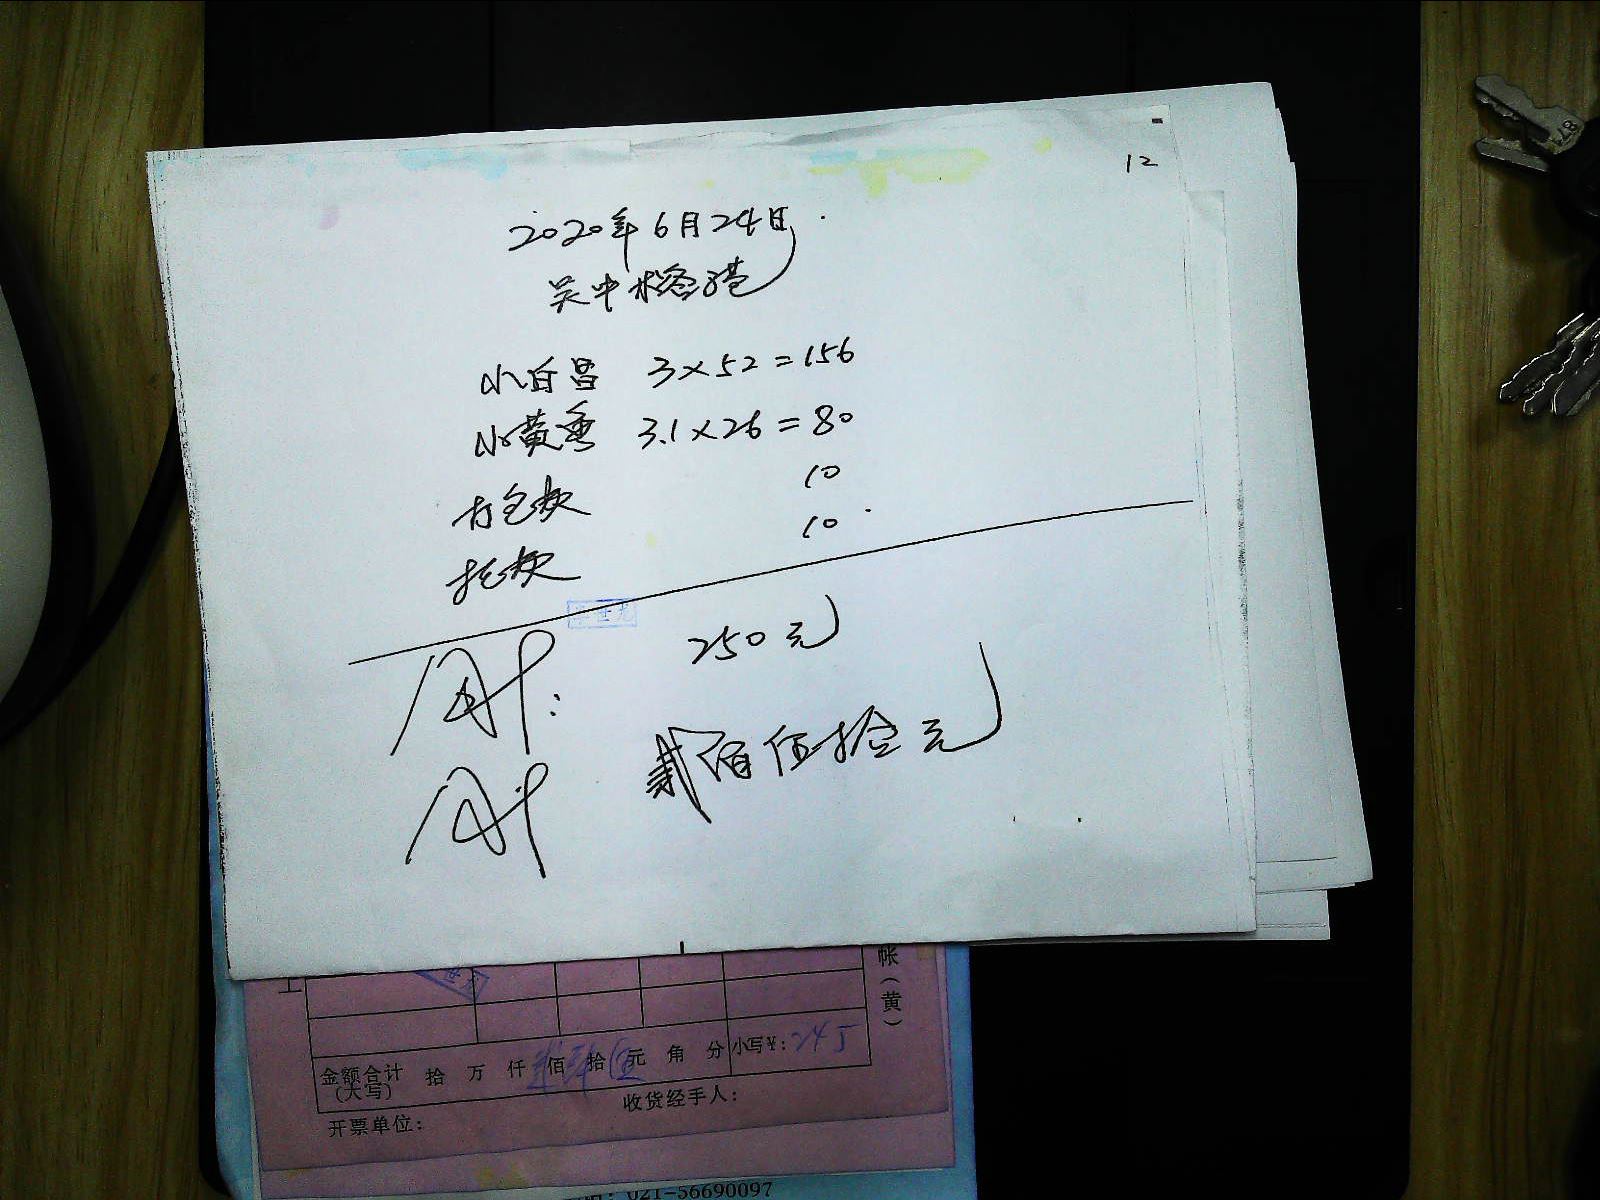 12
2020年6月24日
吴中
小白 3×52=156
小黄鱼 3.1×26=80
打包费 10
托费 10
250元
贰佰伍拾元
帐(黄)
金额合计 拾 万 仟 佰 拾 元 角 分 小写¥: 245
(大写)
收货经手人:
开票单位:
021-56690097